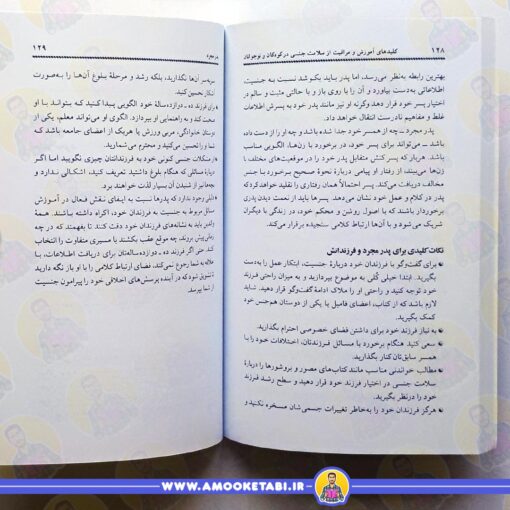 ۱۲۸ کلیدهای آموزش و مراقبت از سلامت جنسی در کودکان و نوجوانان
بهترین رابطه به‌نظر می‌رسد، اما پدر باید بکوشد نسبت به جنسیت،
اطلاعاتی به‌دست بیاورد و آن را با روی باز و با حالتی مثبت و سالم در
اختیار پسر خود قرار دهد وگرنه او نیز مانند پدر خود به پسرش اطلاعات
غلط و مفاهیم نادرست انتقال خواهد داد.
پدر مجرد ــ چه از همسر خود جدا شده باشد و چه او را از دست داده
باشد ــ می‌تواند برای پسر خود، در برخورد با زن‌ها، الگویی مناسب
باشد. هربار که پسر کنش متقابل پدر خود را در موقعیت‌های مختلف با
زن‌ها می‌بیند، از رفتار او پیامی دربارهٔ نحوهٔ صحیح برخورد با جنس
مخالف دریافت می‌کند. پسر احتمالاً همان رفتاری را تقلید خواهد کرد که
پدر در کلام و عمل خود نشان می‌دهد. پسرها باید از نعمت دیدن پدری
برخوردار باشند که با اصول روشن و محکم خود، در زندگی با دیگران
شریک شده، با آن‌ها ارتباط کلامی سنجیده برقرار می‌کند.
نکات کلیدی برای پدر مجرد و فرزندانش
برای گفت‌وگو با فرزندان خود دربارهٔ جنسیت، ابتکار عمل را به‌دست
بگیرید. ابتدا خیلی کُلی به موضوع بپردازید و به میزان راحتی فرزند
خود توجه کنید و راحتی او را ملاک ادامهٔ گفت‌وگو قرار دهید. شاید
لازم باشد که از کتاب، اعضای فامیل یا یکی از دوستان هم‌جنس خود
کمک بگیرید.
به نیاز فرزند خود برای داشتن فضای خصوصی احترام بگذارید.
سعی کنید هنگام برخورد با مسائل فرزندتان، اختلافات خود را با
همسر سابق‌تان کنار بگذارید.
مطالب خواندنی مناسب مانند کتاب‌های مصور و بروشورها را دربارهٔ
سلامت جنسی در اختیار فرزند خود قرار دهید و سطح رشد فرزند
خود را درنظر بگیرید.
هرگز فرزندان خود را به‌خاطر تغییرات جسمی‌شان مسخره نکنید و
۱۲۹
سربه‌سر آن‌ها نگذارید، بلکه رشد و مرحلهٔ بلوغ آن‌ها را به‌صورت
آشکار تحسین کنید.
برای فرزند ده ـ دوازده‌سالهٔ خود الگویی پیدا کنید که بتواند با او
صحبت کند و به راهنمایی او بپردازد. الگوی او می‌تواند معلم، یکی از
دوستان خانوادگی، مربی ورزش یا هریک از اعضای جامعه باشد که
شما او را تحسین می‌کنید و محترم می‌شمارید.
از مشکلات جنسی کنونی خود به فرزندانتان چیزی نگویید اما اگر
دربارهٔ مسائلی که هنگام بلوغ داشتید تعریف کنید، اشکالی ندارد و
بچه‌ها نیز از شنیدن آن بسیار لذت خواهند برد.
دلیلی وجود ندارد که پدرها نسبت به ایفای نقش فعال در آموزش
مسائل مربوط به جنسیت به فرزندان خود، اکراه داشته باشند. همهٔ
والدین باید به نشانه‌های فرزندان خود دقت کنند تا بفهمند که در چه
زمانی پیش بروند، چه موقع عقب بکشند یا مسیری متفاوت را انتخاب
کنند. حتی اگر فرزند ده ـ دوازده‌ساله‌تان برای دریافت اطلاعات، با
علاقه به شما رجوع نمی‌کند، فضای ارتباط کلامی را با او باز نگه دارید
و تشویق کنید که در آینده پرسش‌های اخلاقی خود را پیرامون جنسیت
از شما بپرسد.
WWW.AMOOKETABI.IR